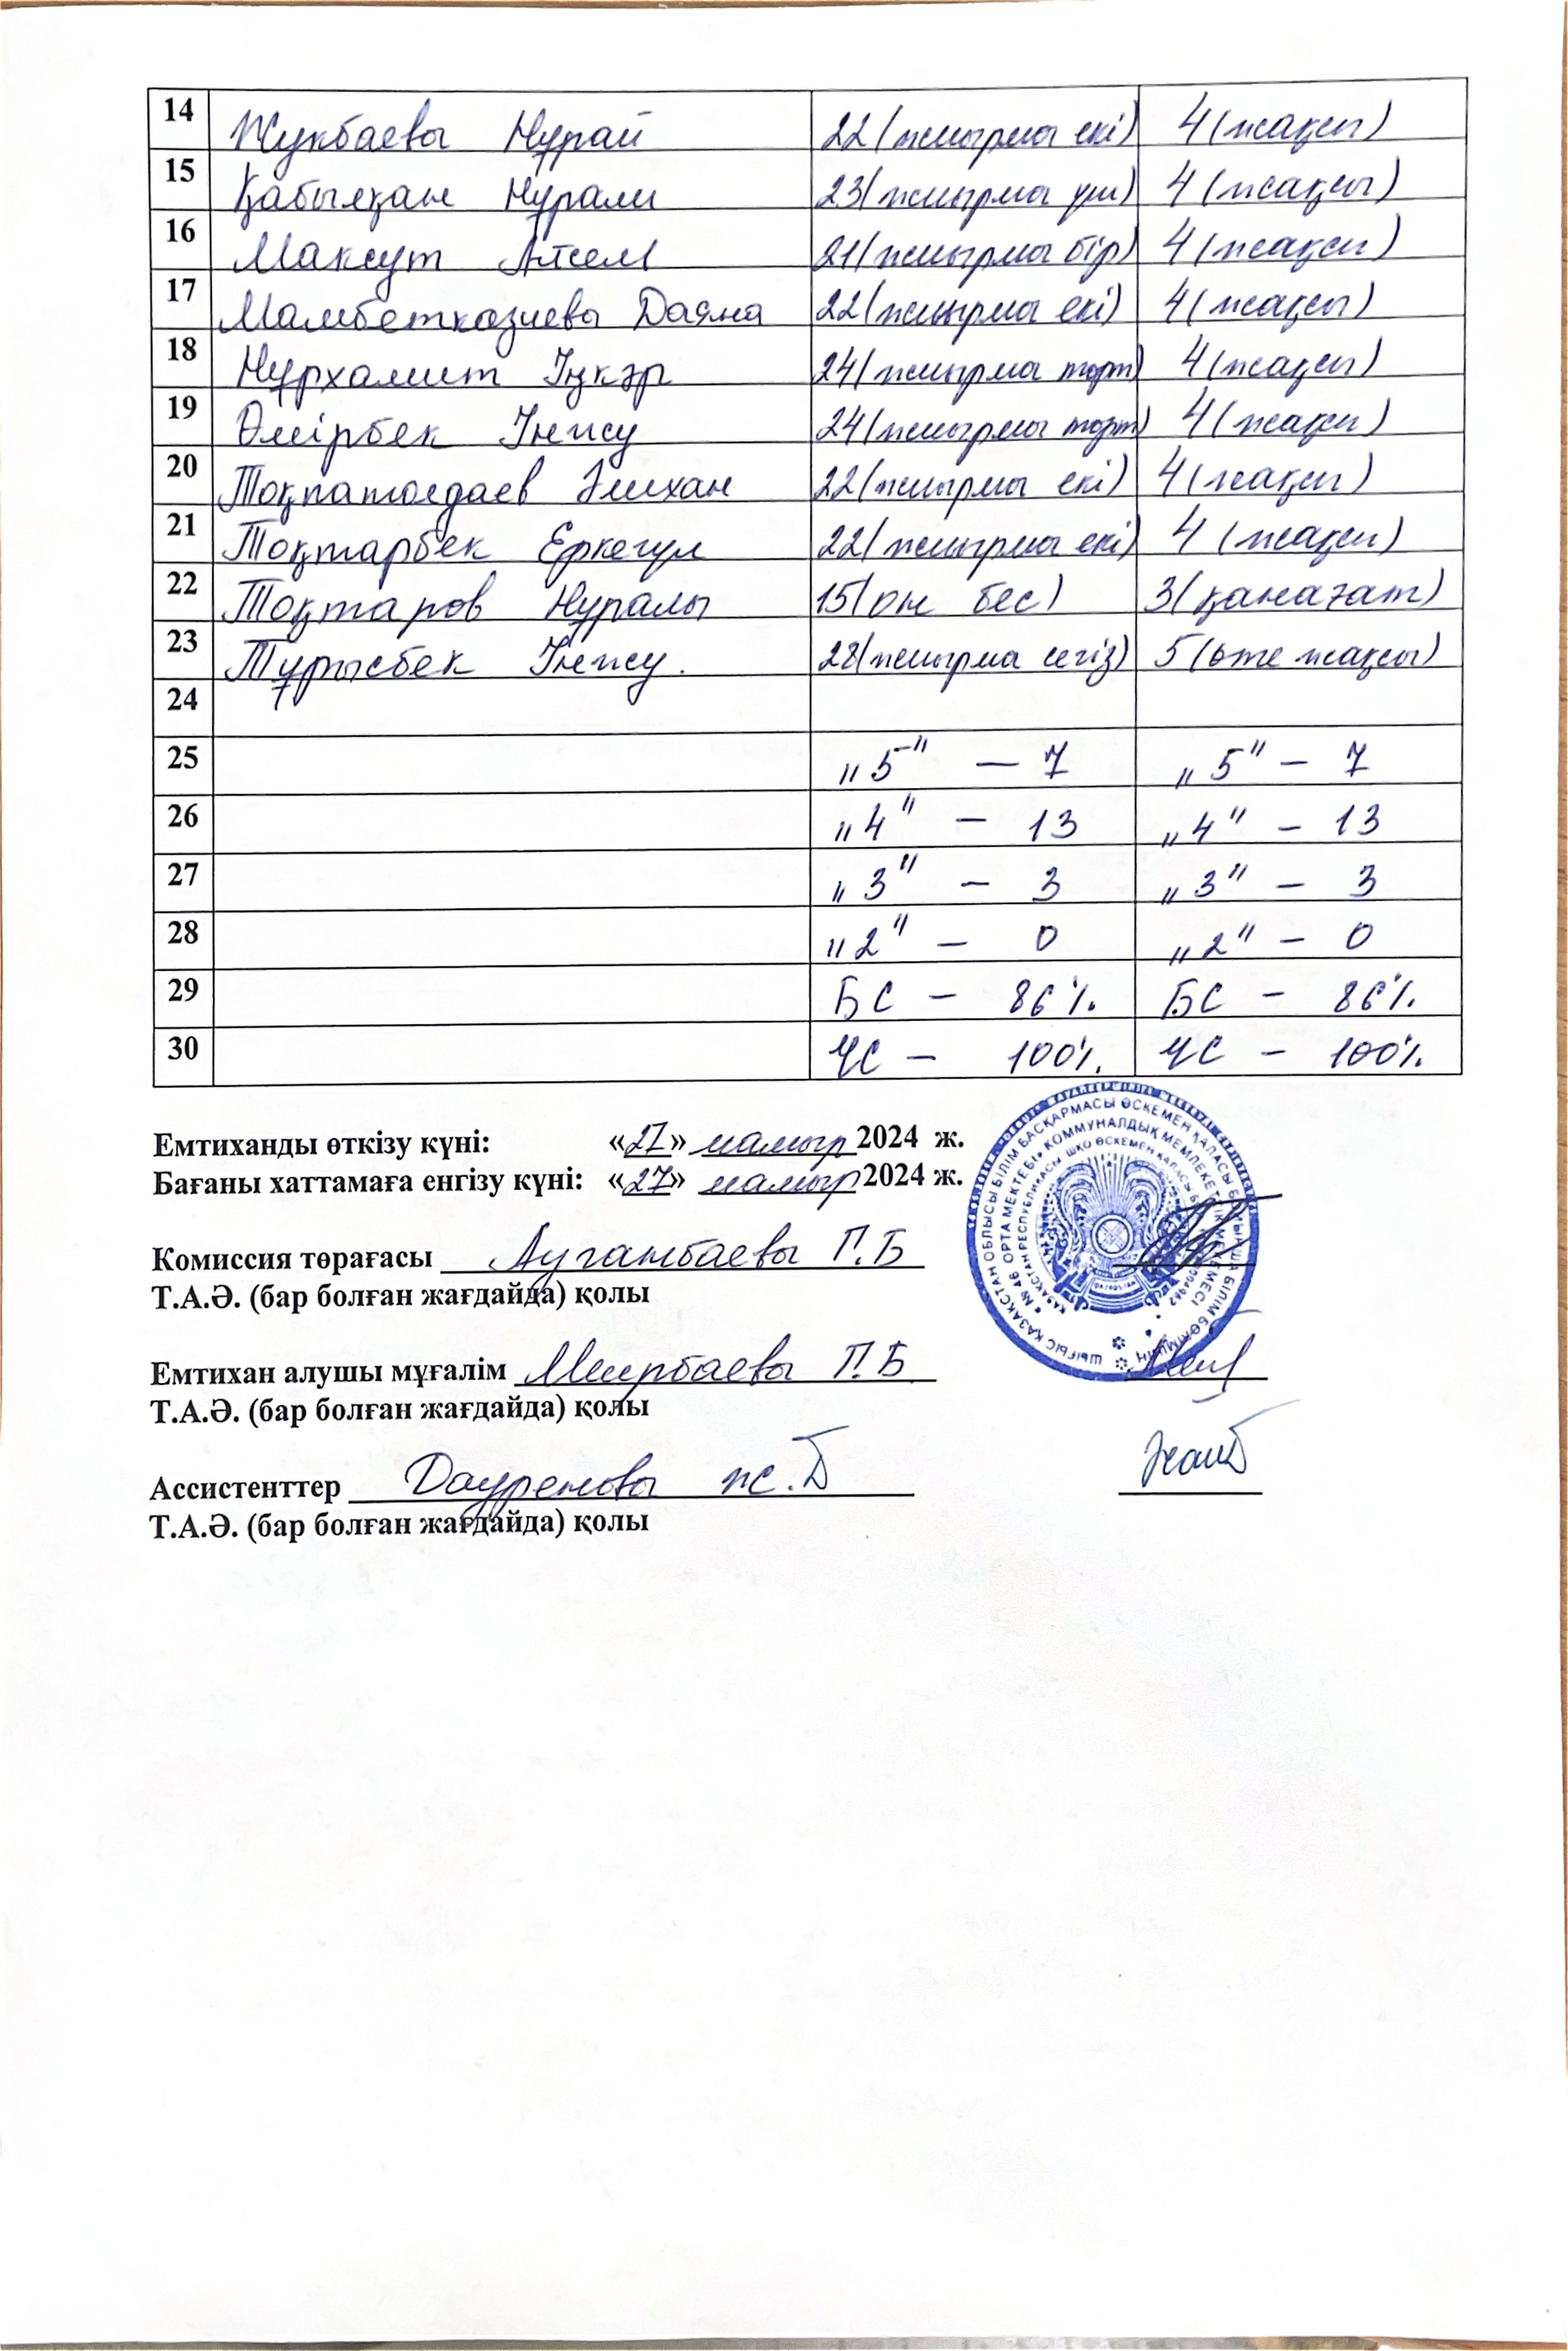 14 Жукбаева Нұрай 22 (жиырма екі) 4 (жақсы)
15 Қабылқан Нұрали 23 (жиырма үш) 4 (жақсы)
16 Максут Айсел 21 (жиырма бір) 4 (жақсы)
17 Мамбетказиева Даяна 22 (жиырма екі) 4 (жақсы)
18 Нұрхамит Іңкәр 24 (жиырма төрт) 4 (жақсы)
19 Өмірбек Інжу 24 (жиырма төрт) 4 (жақсы)
20 Тоқпатолдаев Әлихан 22 (жиырма екі) 4 (жақсы)
21 Тоқтарбек Еркегул 22 (жиырма екі) 4 (жақсы)
22 Тоқтаров Нұралы 15 (он бес) 3 (қанағат)
23 Тұрысбек Інжу. 28 (жиырма сегіз) 5 (өте жақсы)
24
25 „5" — 7 „5" – 7
26 „4" – 13 „4" – 13
27 „3" – 3 „3" – 3
28 „2" – 0 „2" – 0
29 БС – 86% БС – 86%
30 ҮС – 100% ҮС – 100%
Емтиханды өткізу күні: «27» мамыр 2024 ж.
Бағаны хаттамаға енгізу күні: «27» мамыр 2024 ж.
Комиссия төрағасы Ауганбаева Г.Б
Т.А.Ә. (бар болған жағдайда) қолы
Емтихан алушы мұғалім Меирбаева Г.Б
Т.А.Ә. (бар болған жағдайда) қолы
Ассистенттер Дауренова Ж.Б
Т.А.Ә. (бар болған жағдайда) қолы
ШЫҒЫС ҚАЗАҚСТАН ОБЛЫСЫ БІЛІМ БАСҚАРМАСЫ ӨСКЕМЕН ҚАЛАСЫ БОЙЫНША БІЛІМ БӨЛІМІНІҢ
№ 46 ОРТА МЕКТЕБІ» КОММУНАЛДЫҚ МЕМЛЕКЕТТІК МЕКЕМЕСІ
ҚАЗАҚСТАН РЕСПУБЛИКАСЫ ШҚО ӨСКЕМЕН ҚАЛАСЫ